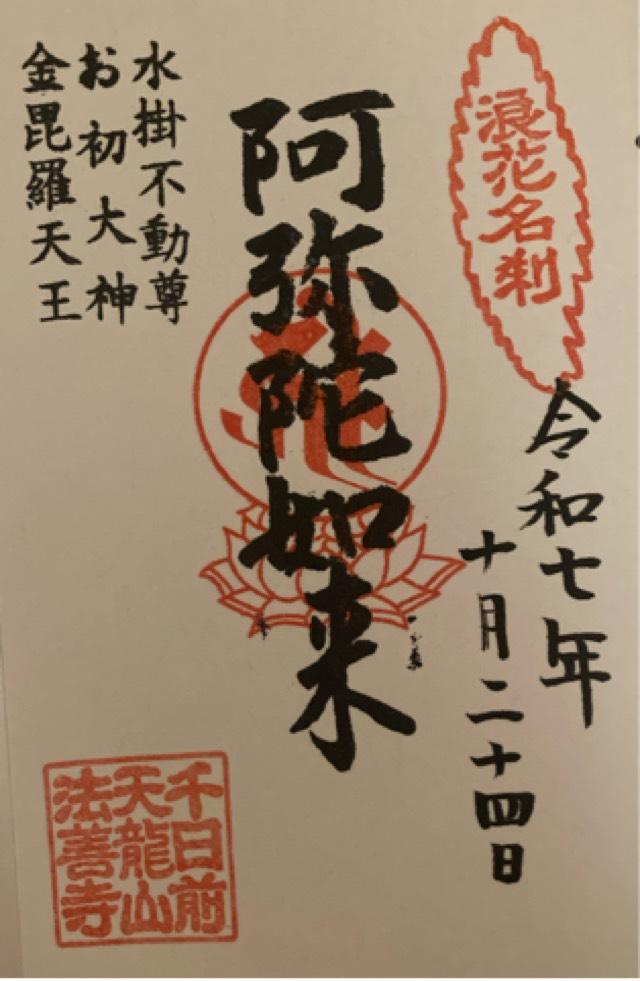 浪花名刹
令和七年
十月二十四日
阿弥陀如来
水掛不動尊
お初大神
金毘羅天王
千日前
天龍山
法善寺